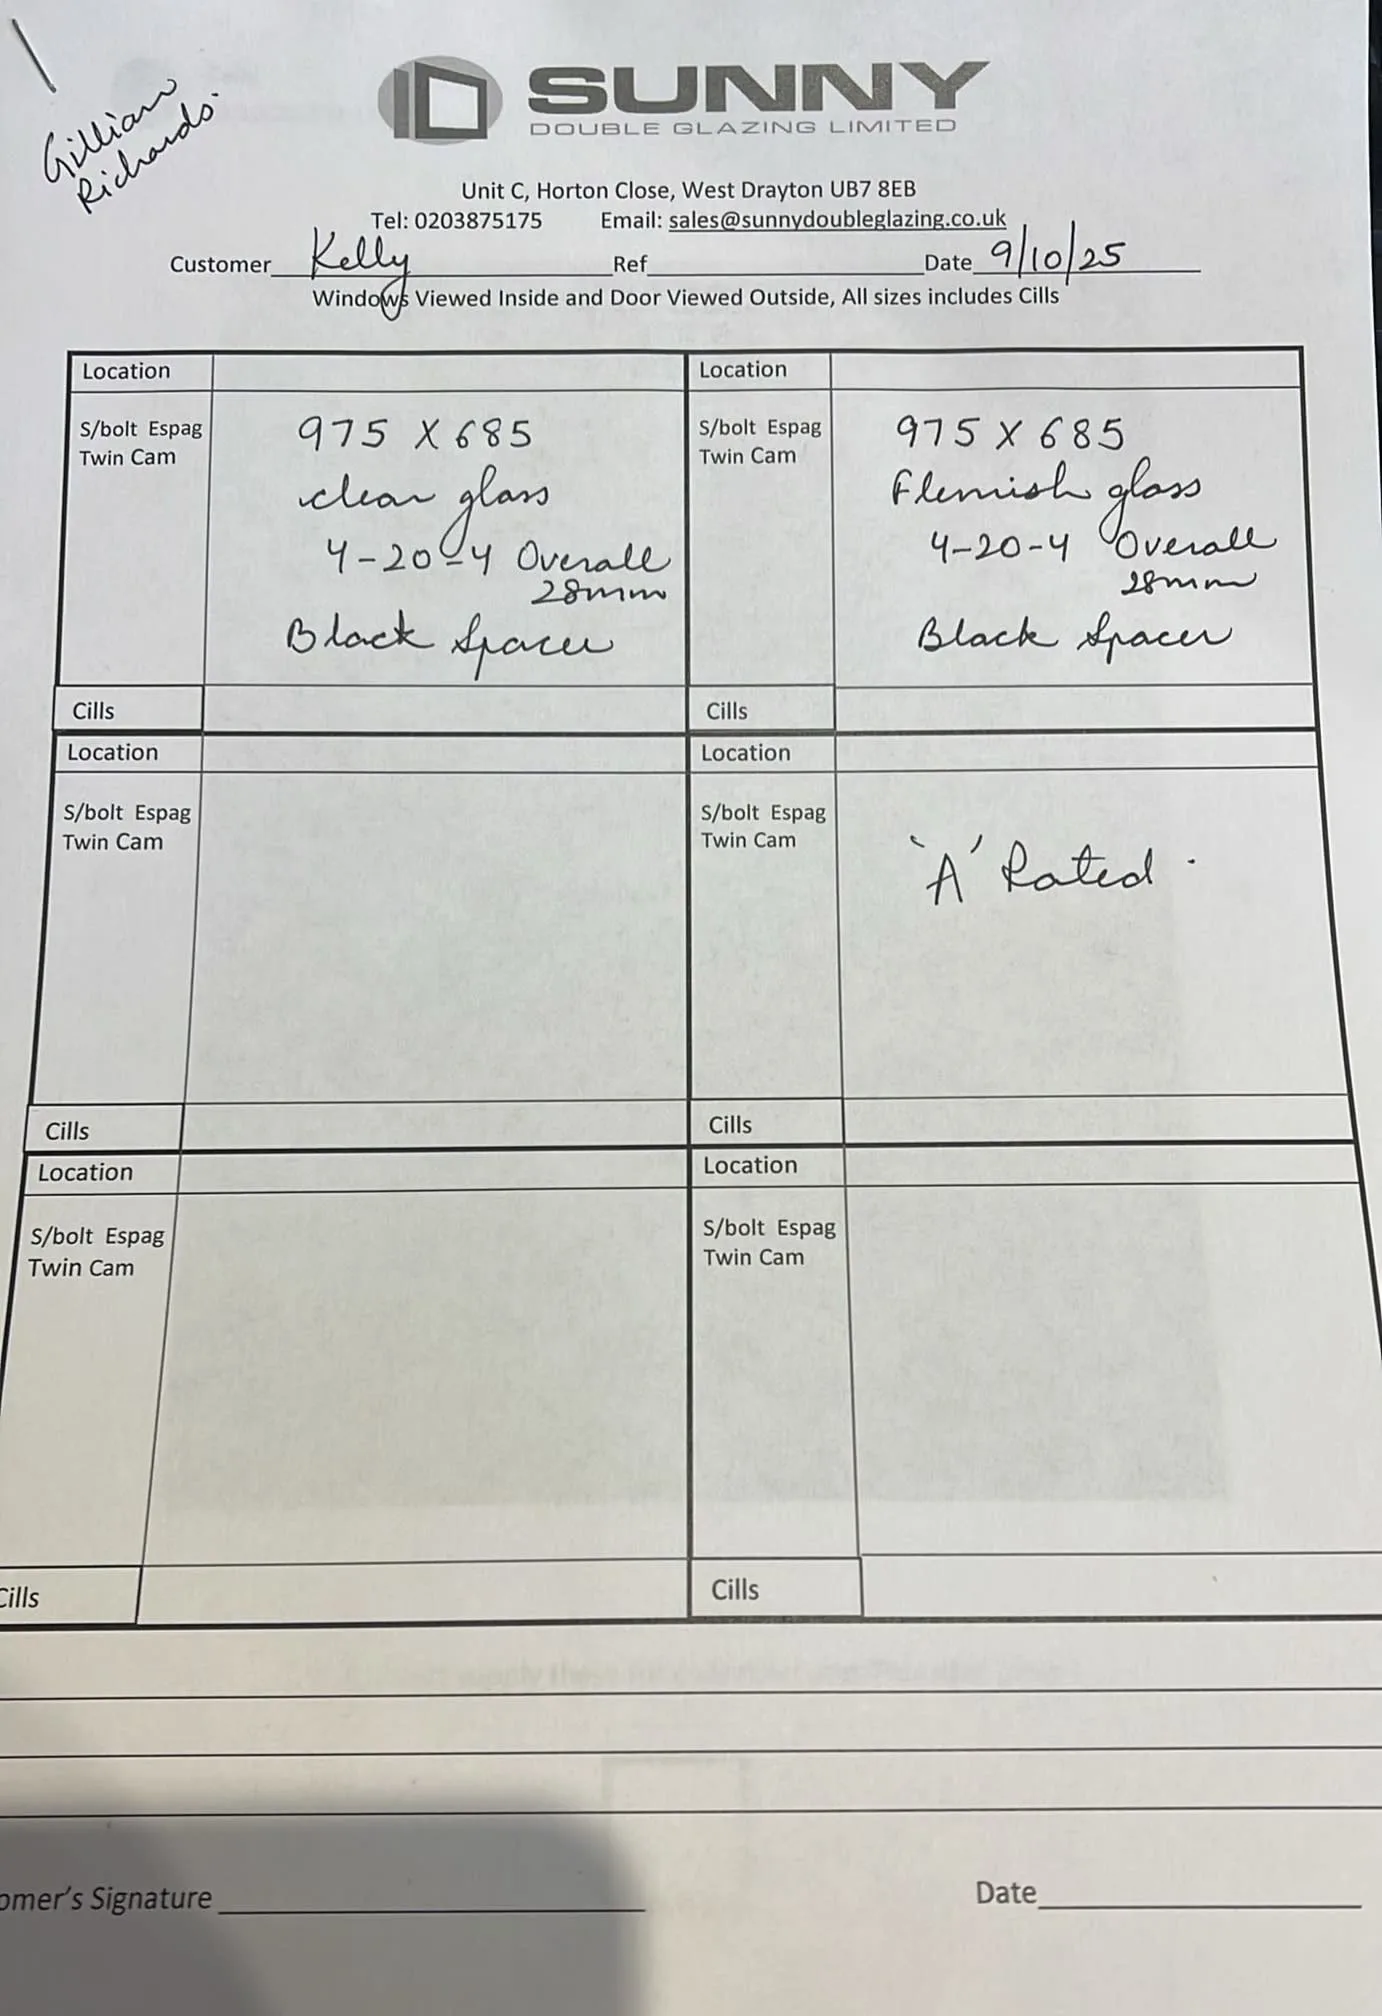 Gillian
Richards.
SUNNY
DOUBLE GLAZING LIMITED
Unit C, Horton Close, West Drayton UB7 8EB
Tel: 0203875175 Email: sales@sunnydoubleglazing.co.uk
Customer Kelly Ref Date 9/10/25
Windows Viewed Inside and Door Viewed Outside, All sizes includes Cills
Location
S/bolt Espag
Twin Cam
975 X 685
clear glass
4-20-4 Overall
28mm
Black Spacer
Cills
Location
S/bolt Espag
Twin Cam
975 X 685
Flemish glass
4-20-4 Overall
28mm
Black Spacer
Cills
Location
S/bolt Espag
Twin Cam
Cills
Location
S/bolt Espag
Twin Cam
'A' Rated.
Cills
Location
S/bolt Espag
Twin Cam
Cills
Location
S/bolt Espag
Twin Cam
Cills
omer's Signature Date